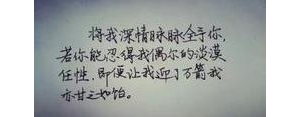 将我深情脉脉全予你，
若你能忍得我偶尔的淡漠
任性，即便让我迎了万箭我
亦甘之如饴。